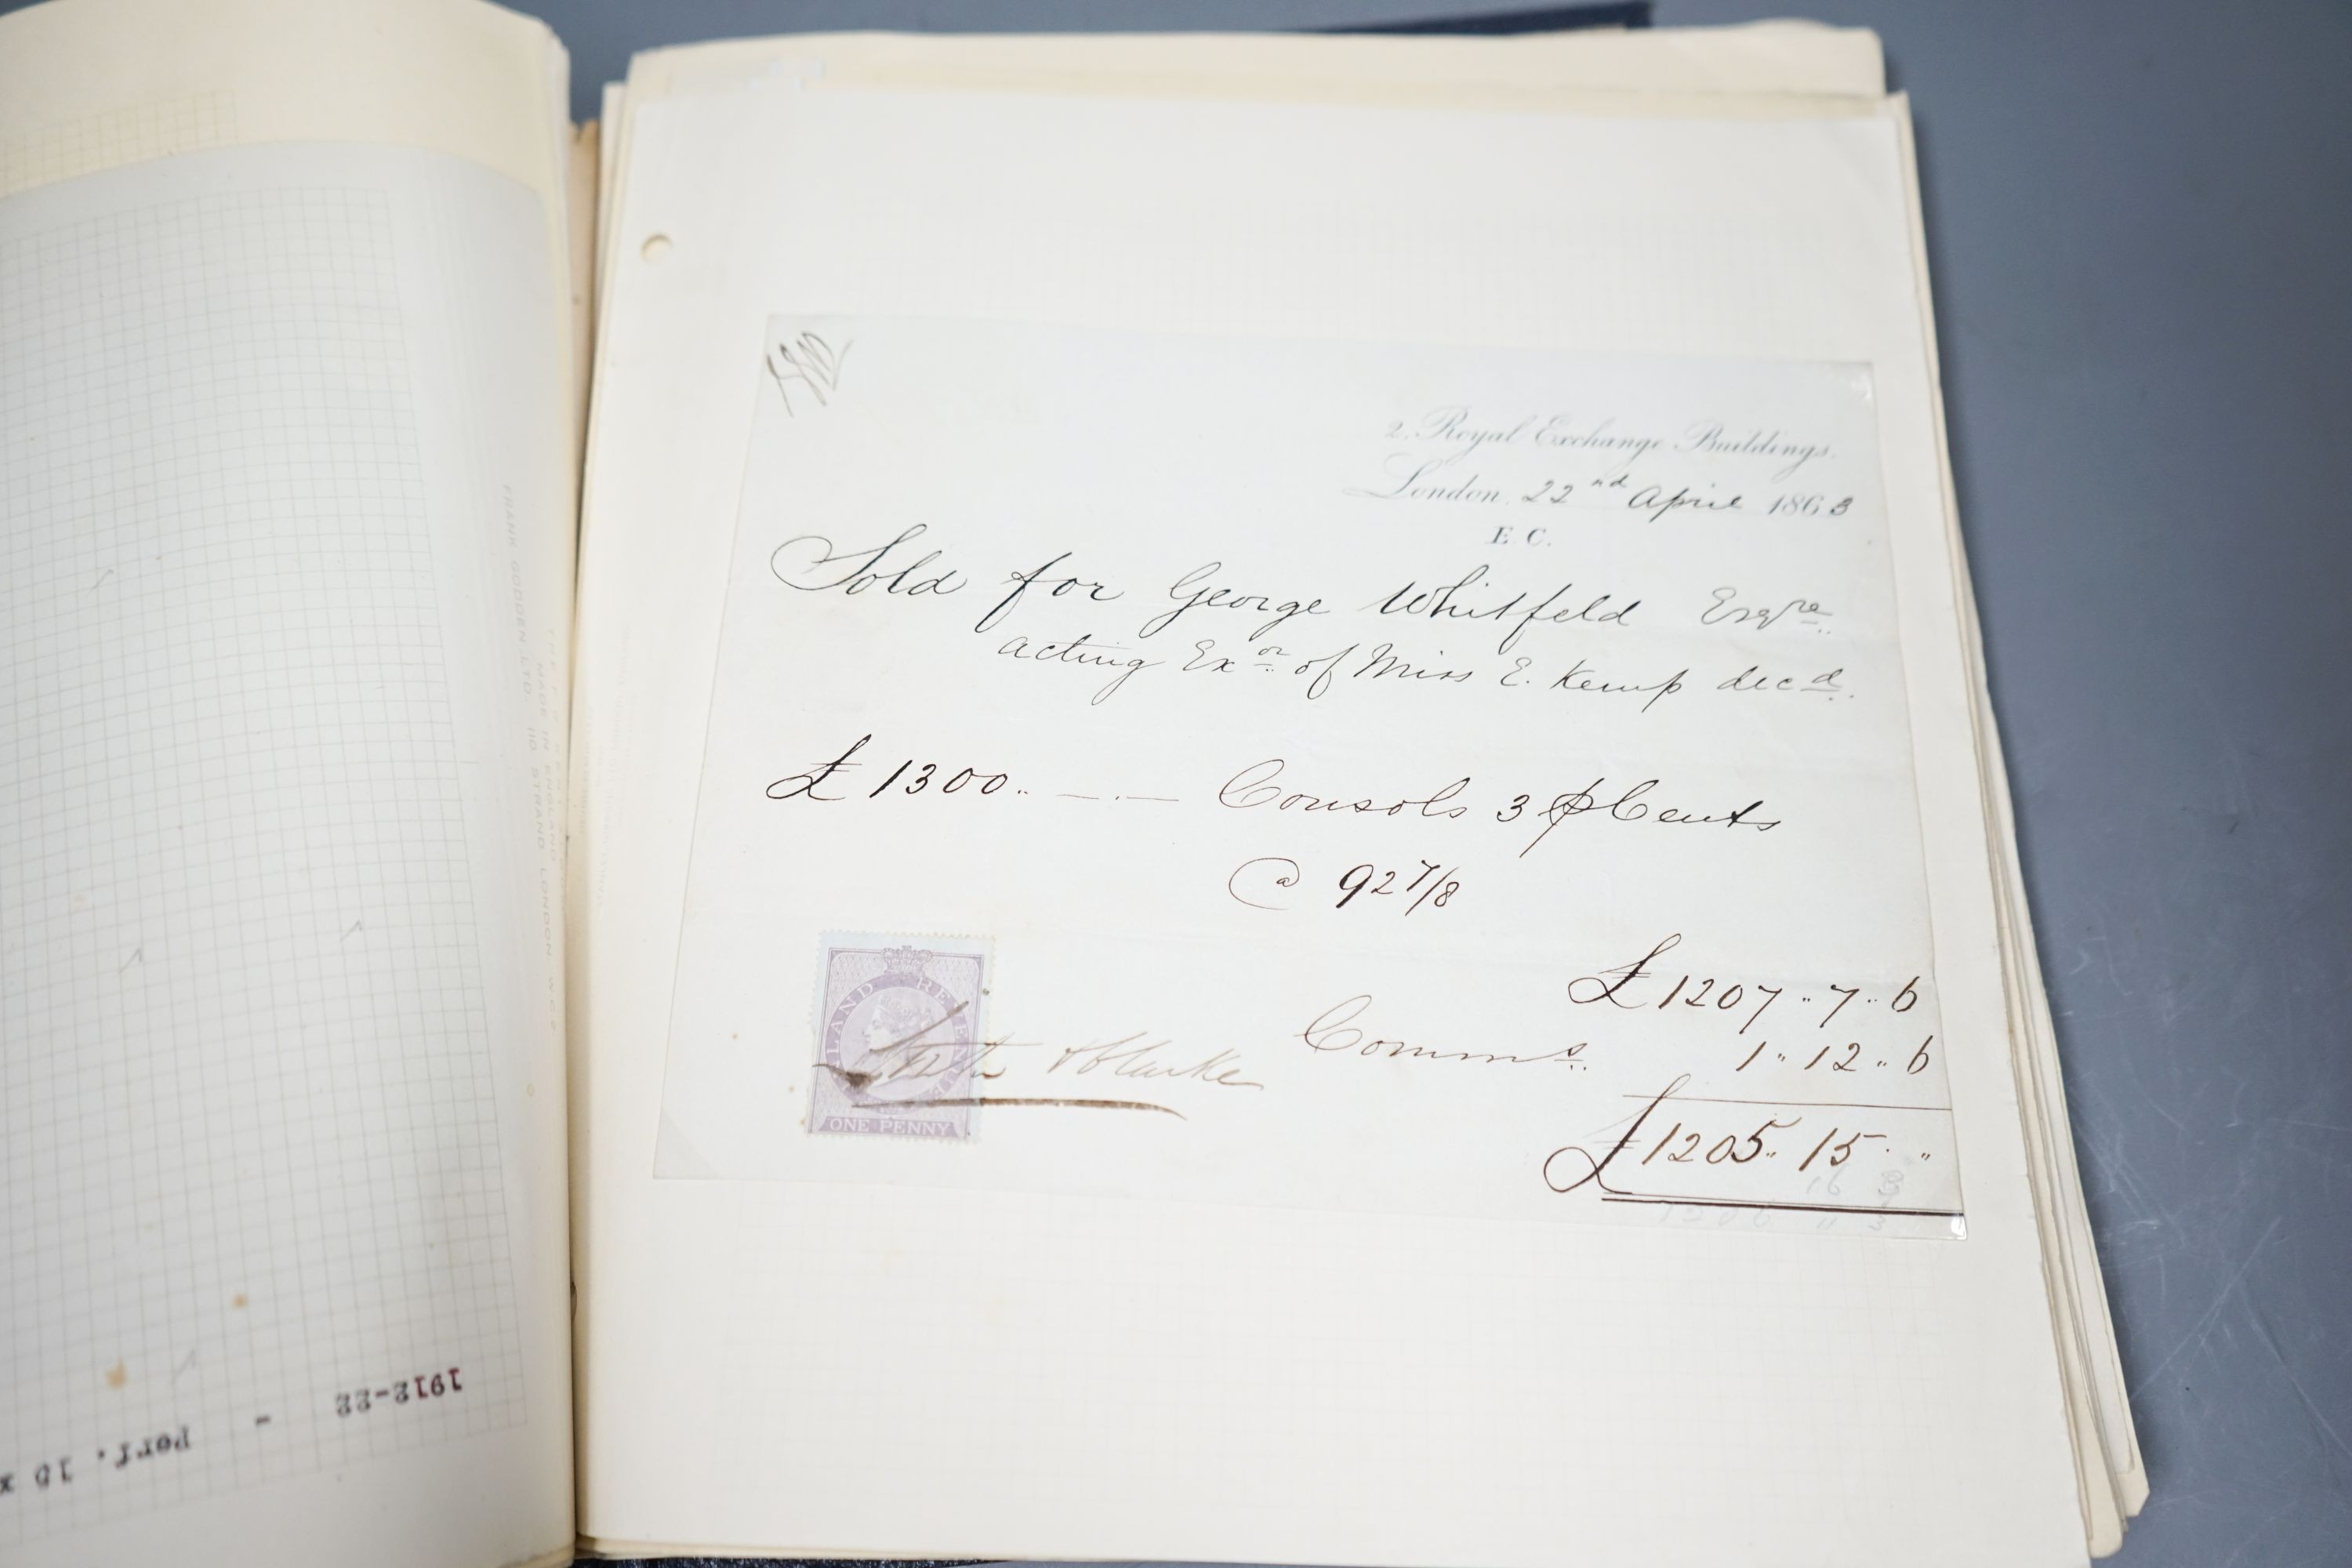 2. Royal Exchange Buildings.
London, 22nd April 1863
E. C.
Sold for George Whitfeld Esqre
acting Exor of Miss E. Kemp decd.
£1300 .. — . — Consols 3 ⅌ Cents
@ 92 7/8
£1207 .. 7 .. 6
Comms. 1 .. 12 .. 6
£1205 .. 15 . "
INLAND REVENUE
ONE PENNY
FRANK GODDEN LTD 110 STRAND LONDON W.C.2
MADE IN ENGLAND
1912-22 - Perf. 15 x